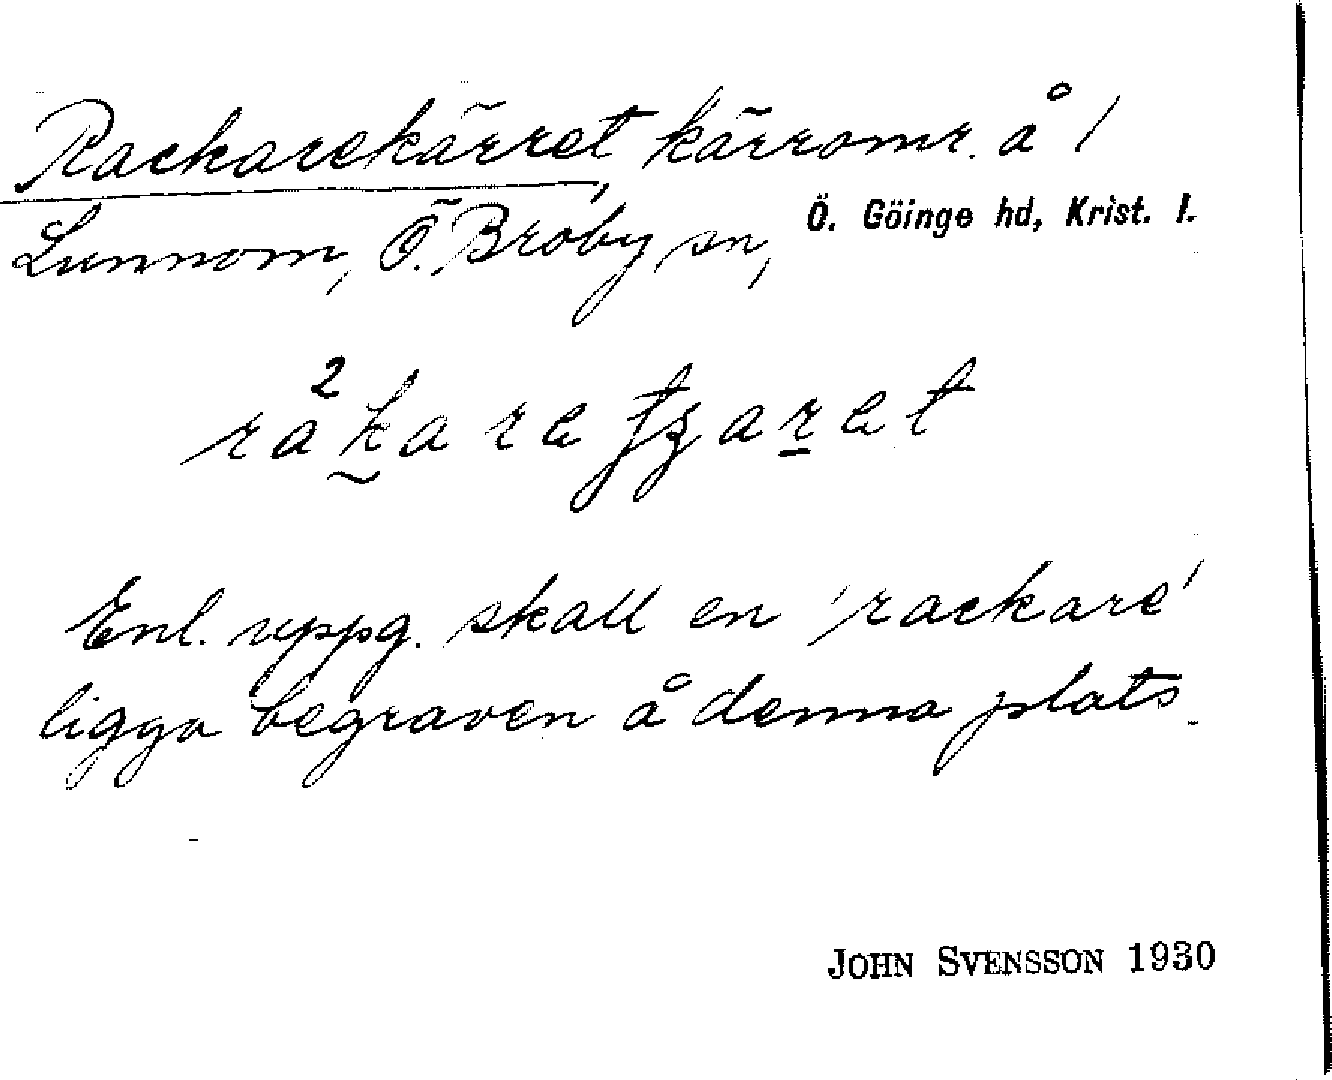 Rackarekärret, kärromr. å 1
Lunnom, Ö. Broby sn, Ö. Göinge hd, Krist. l.
Enl. uppg. skall en 'rackare'
ligga begraven å denna plats.
JOHN SVENSSON 1930